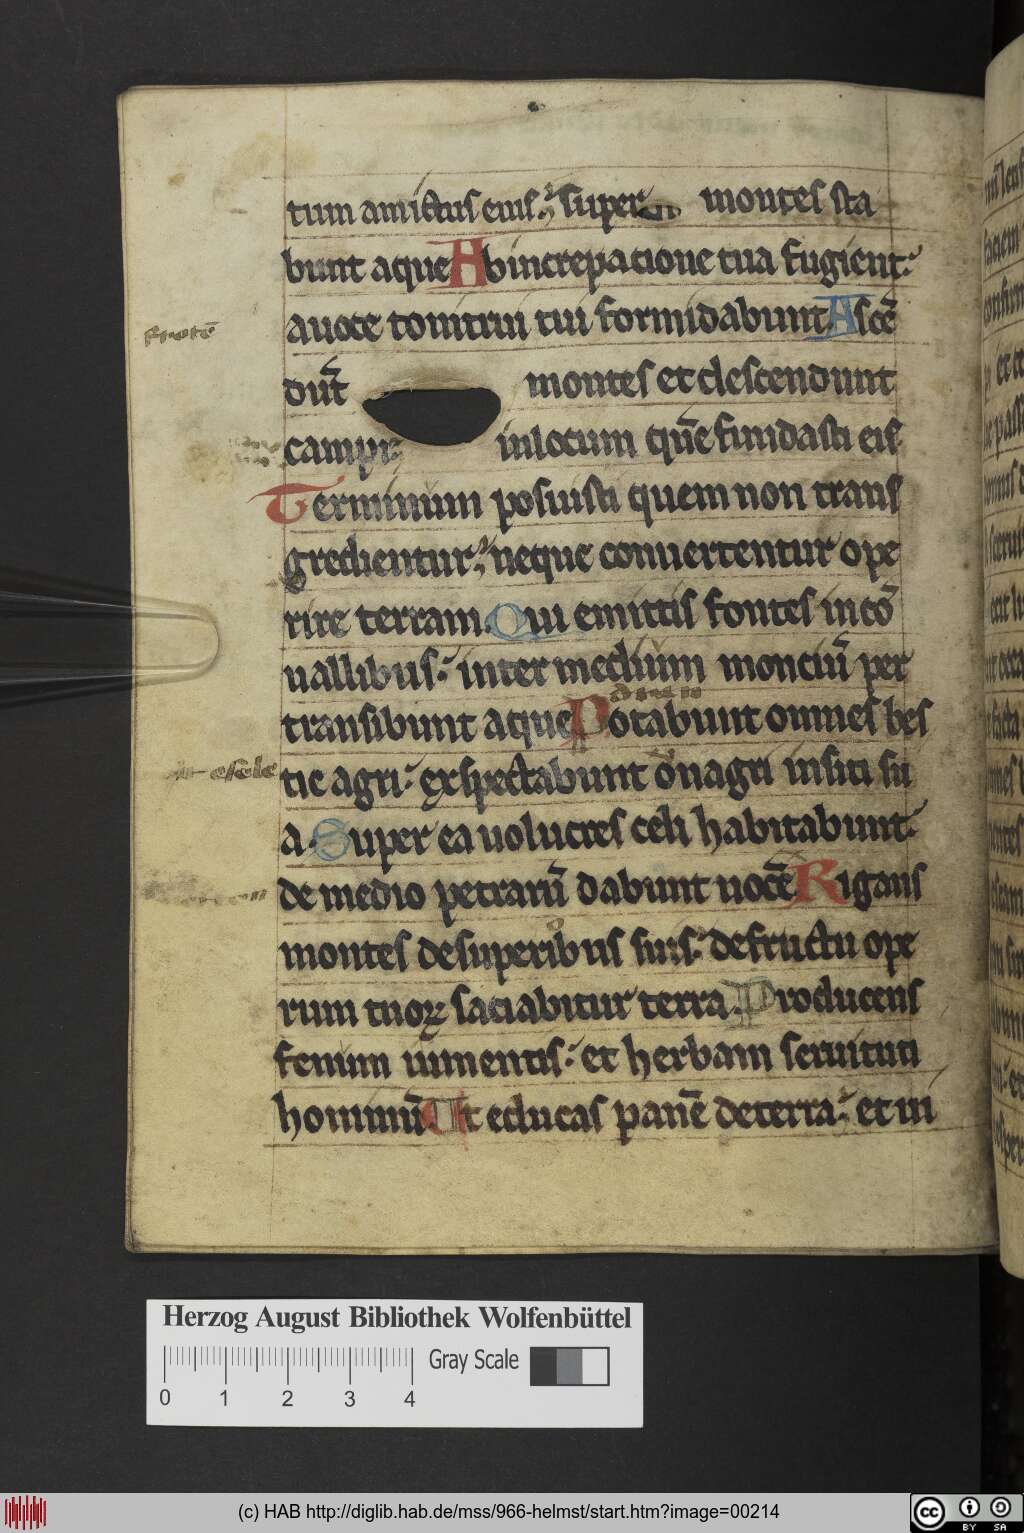 tum amictus eius: super montes sta
bunt aque Ab increpacione tua fugient:
a uoce tonitrui tui formidabunt Ascē
dūt montes et descendunt
campi: in locum quē fundasti eis
Terminum posuisti quem non trans
gredientur: neque conuertentur ope
rire terram. Qui emittis fontes in cō
uallibus: inter medium monciū per
transibunt aque Potabunt omnes bes
tie agri: exspectabunt onagri in siti su
a. Super ea uolucres celi habitabunt:
de medio petrarū dabunt uocē Rigans
montes de superibus suis: de fructu ope
rum tuoꝝ saciabitur terra Producens
fenum iumentis: et herbam seruituti
hominū Ut educas panē de terra: et ui
esele
Herzog August Bibliothek Wolfenbüttel
Gray Scale
0 1 2 3 4
(c) HAB http://diglib.hab.de/mss/966-helmst/start.htm?image=00214
cc BY SA